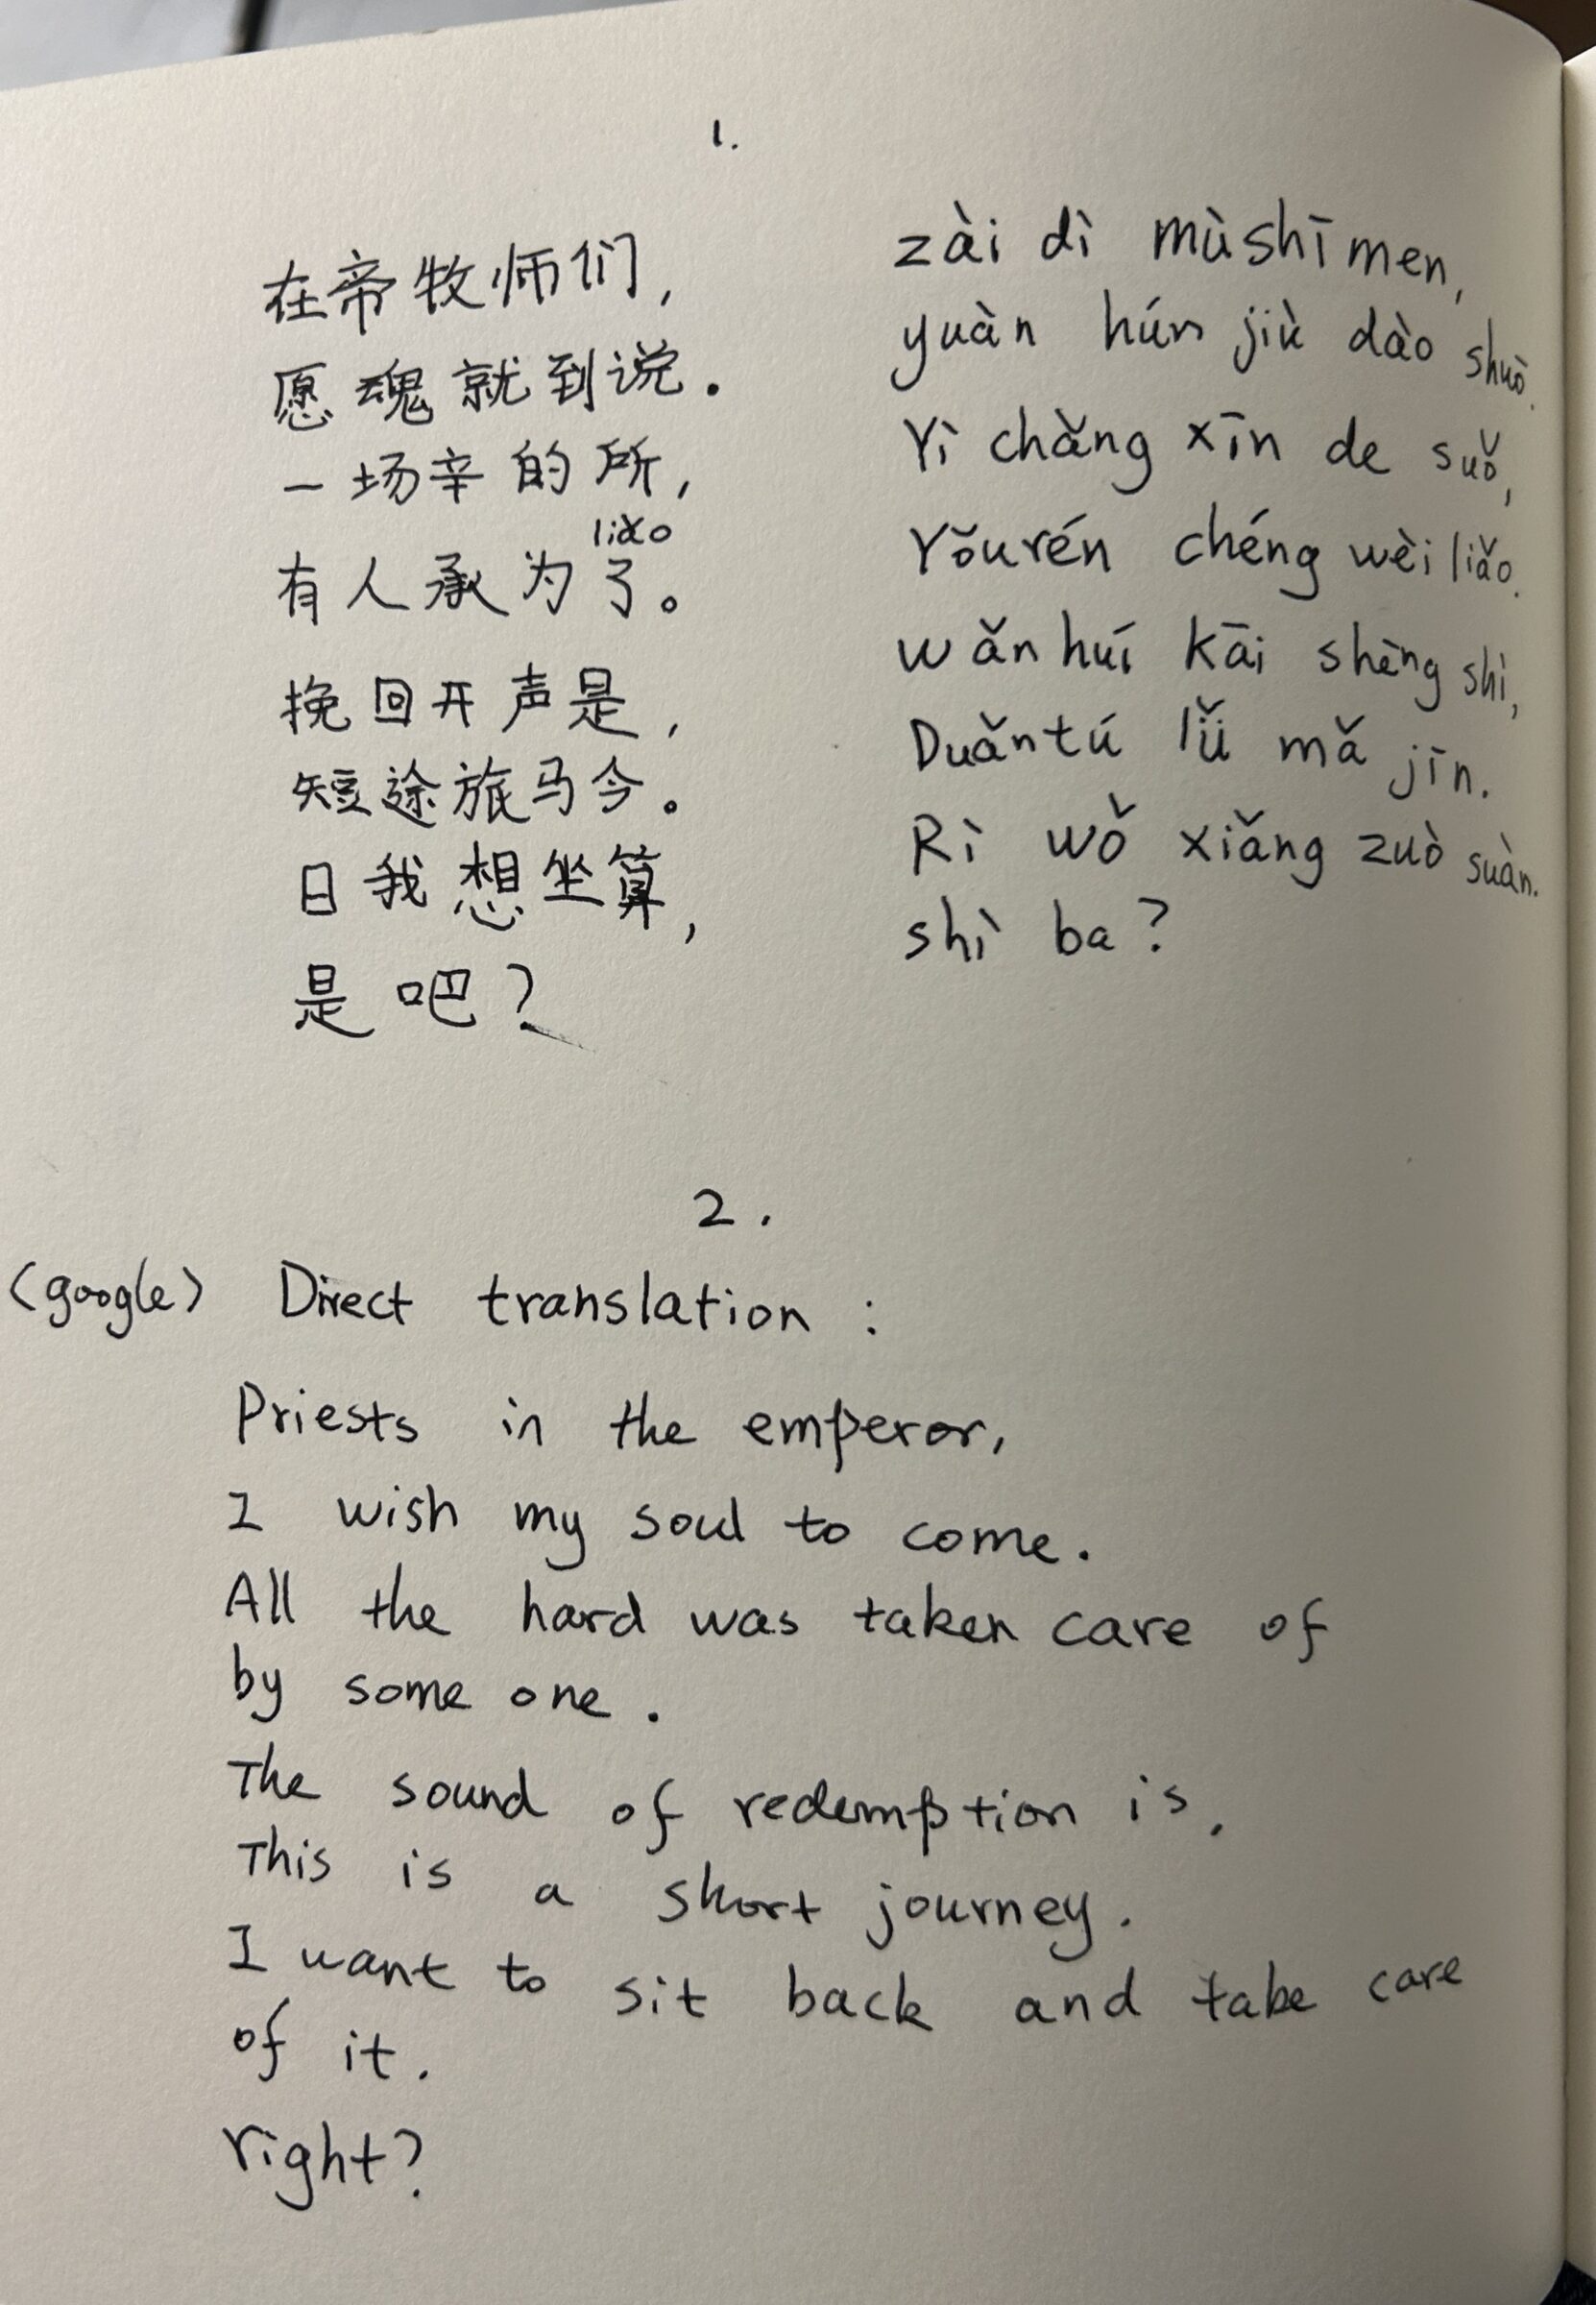 1.
在帝牧师们,
愿魂就到说.
一场辛的所,
liǎo
有人承为了。
挽回开声是,
短途旅马今。
日我想坐算,
是吧?
zài dì mùshīmen,
yuàn hún jiù dào shuō.
Yì chǎng xīn de suǒ,
Yǒurén chéng wèi liǎo.
wǎnhuí kāi shēng shì,
Duǎntú lǚ mǎ jīn.
Rì wǒ xiǎng zuò suàn.
shì ba?
2.
(google) Direct translation:
Priests in the emperor,
I wish my soul to come.
All the hard was taken care of
by some one.
The sound of redemption is,
This is a short journey.
I want to sit back and take care
of it.
right?